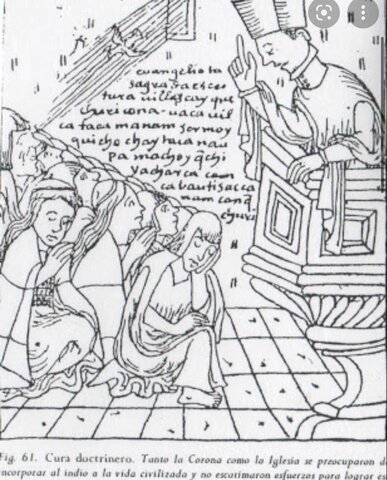 evangelio ta
sagra da esc
tura villascayque
churicona-uaca uil
ca taca manam sermoy
quicho chaytaia nau
pa machoy q̃chi
yacharca con
ca bautisacca
mam conq̃
churi
Fig. 61. Cura doctrinero. Tanto la Corona como la Iglesia se preocuparon de
incorporar al indio a la vida civilizada y no escatimaron esfuerzos para lograr